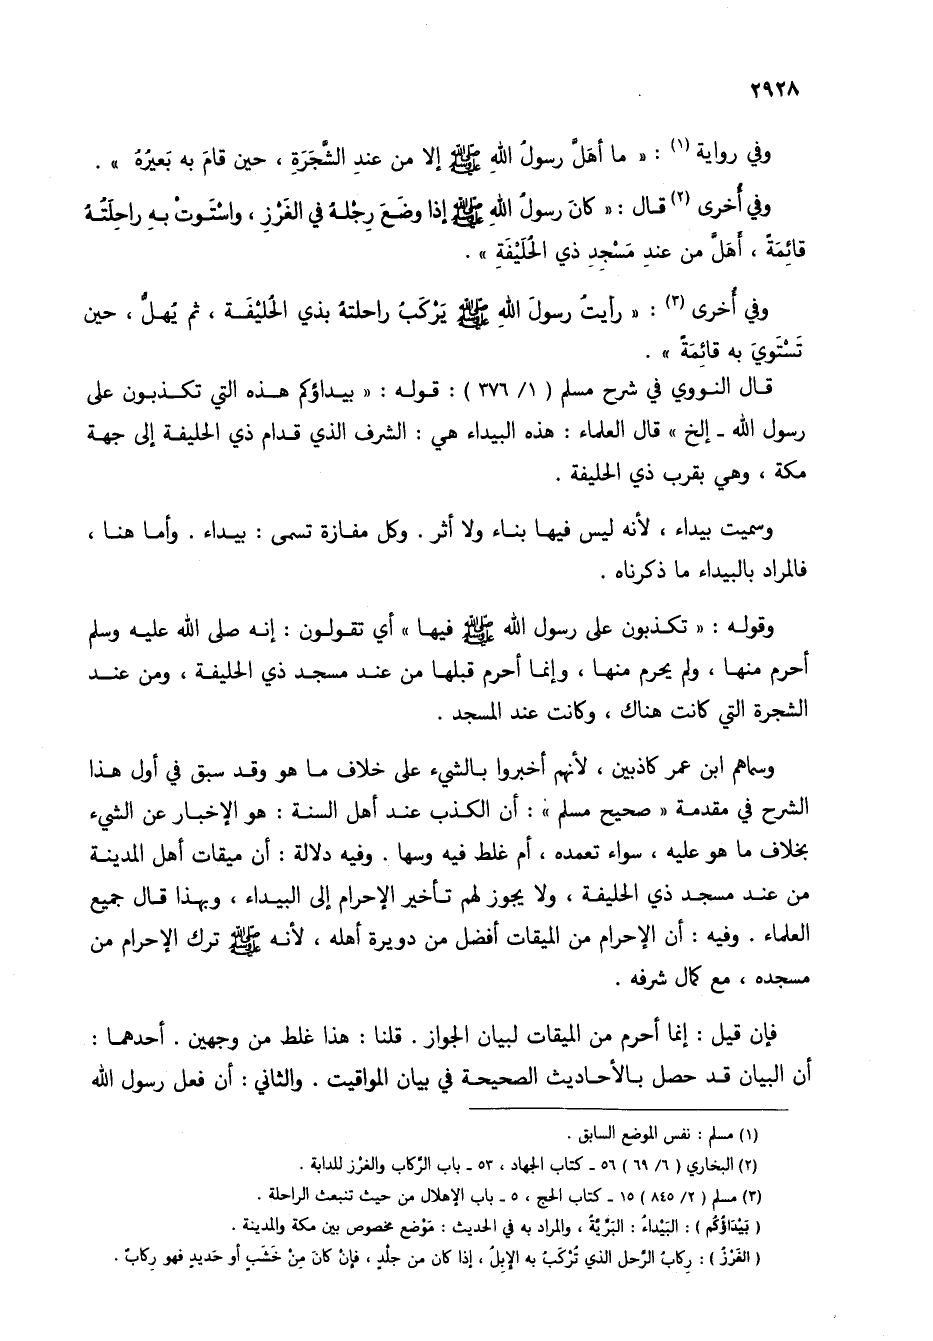 ٢٩٢٨
وفي رواية (١) : « ما أهَلَّ رسولُ اللهِ ﷺ إلا من عندِ الشَّجَرَةِ ، حين قامَ به بَعيرُهُ » .
وفي أُخرى (٢) قـال : « كانَ رسولُ اللهِ ﷺ إذا وضَعَ رِجْلهُ في الغَرْزِ ، واسْتَوتْ بـهِ راحِلَتُـهُ
قائِمَةً ، أَهَلَّ من عندِ مَسْجِدِ ذي الحُلَيْفَةِ » .
وفي أُخرى (٣) : « رأيتُ رسولَ اللهِ ﷺ يَرْكَبُ راحلتهُ بذي الحُليْفَـة ، ثم يُهـلُّ ، حين
تَسْتَوِيَ به قائِمَةً » .
قـال النـووي في شرح مسلم ( ١/ ٣٧٦ ) : قـولـه : « بيـداؤكم هـذه التي تكـذبـون على
رسول الله ـ إلخ » قال العلماء : هذه البيداء هي : الشرف الذي قـدام ذي الحليفـة إلى جهـة
مكة ، وهي بقرب ذي الحليفة .
وسميت بيداء ، لأنه ليس فيهـا بنـاء ولا أثر . وكل مفـازة تسمى : بيـداء . وأمـا هنـا ،
فالمراد بالبيداء ما ذكرناه .
وقولـه : « تكـذبون على رسول الله ﷺ فيهـا » أي تقـولـون : إنـه صلى الله عليـه وسلم
أحرم منهـا ، ولم يحرم منهـا ، وإنمـا أحرم قبلهـا من عنـد مسجـد ذي الحليفـة ، ومن عنـد
الشجرة التي كانت هناك ، وكانت عند المسجد .
وسماهم ابن عمر كاذبين ، لأنهم أخبروا بـالشيء على خلاف مـا هو وقـد سبق في أول هـذا
الشرح في مقدمـة « صحيح مسلم » : أن الكـذب عنـد أهل السنـة : هو الإخبـار عن الشيء
بخلاف ما هو عليه ، سواء تعمده ، أم غلط فيه وسها . وفيه دلالة : أن ميقات أهل المدينـة
من عنـد مسجـد ذي الحليفـة ، ولا يجوز لهم تـأخير الإحرام إلى البيـداء ، وبهـذا قـال جميع
العلماء . وفيه : أن الإحرام من الميقات أفضل من دويرة أهله ، لأنـه ﷺ ترك الإحرام من
مسجده ، مع كمال شرفه .
فإن قيل : إنما أحرم من الميقات لبيان الجواز . قلنا : هذا غلط من وجهين . أحدهمـا :
أن البيان قـد حصل بـالأحـاديث الصحيحـة في بيـان المواقيت . والثاني : أن فعل رسول الله
(١) مسلم : نفس الموضع السابق .
(٢) البخاري ( ٦/ ٦٩ ) ٥٦ ـ كتاب الجهاد ، ٥٣ ـ باب الرِّكاب والغرْز للدابة .
(٣) مسلم ( ٢/ ٨٤٥ ) ١٥ ـ كتاب الحج ، ٥ ـ باب الإهلال من حيث تنبعث الراحلة .
( بَيْدَاؤُكُم ) : البَيْداءُ : البَرِّيَّةُ ، والمراد به في الحديث : مَوْضع مخصوص بين مكة والمدينة .
( الغَرْزُ ) : رِكابُ الرَّحل الذي تُرْكَبُ به الإبِلُ ، إذا كان من جلْدٍ ، فإنْ كانَ مِنْ خَشَبٍ أو حَديدٍ فهو رِكابٌ .